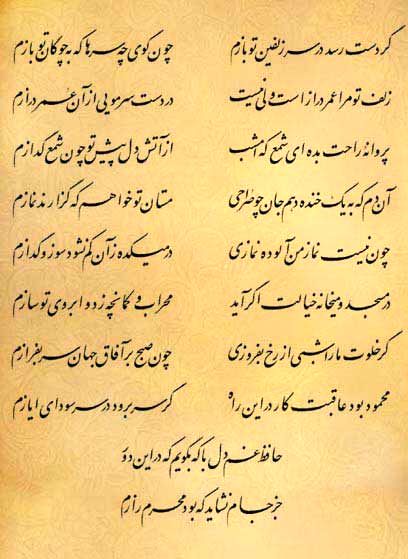 گر دست رسد در سر زلفین تو بازم چون گوی چه سرها که به چوگان تو بازم
زلف تو مرا عمر دراز است ولی نیست در دست سر مویی از آن عمر درازم
پروانهٔ راحت بده ای شمع که امشب از آتش دل پیش تو چون شمع گدازم
آن دم که به یک خنده دهم جان چو صراحی مستان تو خواهم که گزارند نمازم
چون نیست نماز من آلوده نمازی در میکده زآن کم نشود سوز و گدازم
در مسجد و میخانه خیالت اگر آید محراب و کمانچه ز دو ابروی تو سازم
گر خلوت ما را شبی از رخ بفروزی چون صبح بر آفاق جهان سر بفرازم
محمود بود عاقبت کار در این راه گر سر برود در سر سودای ایازم
حافظ غم دل با که بگویم که در این دور
جز جام نشاید که بود محرم رازم